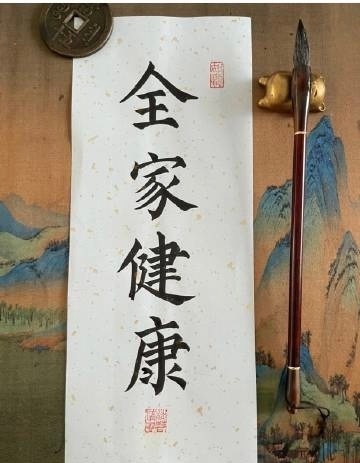 全家健康